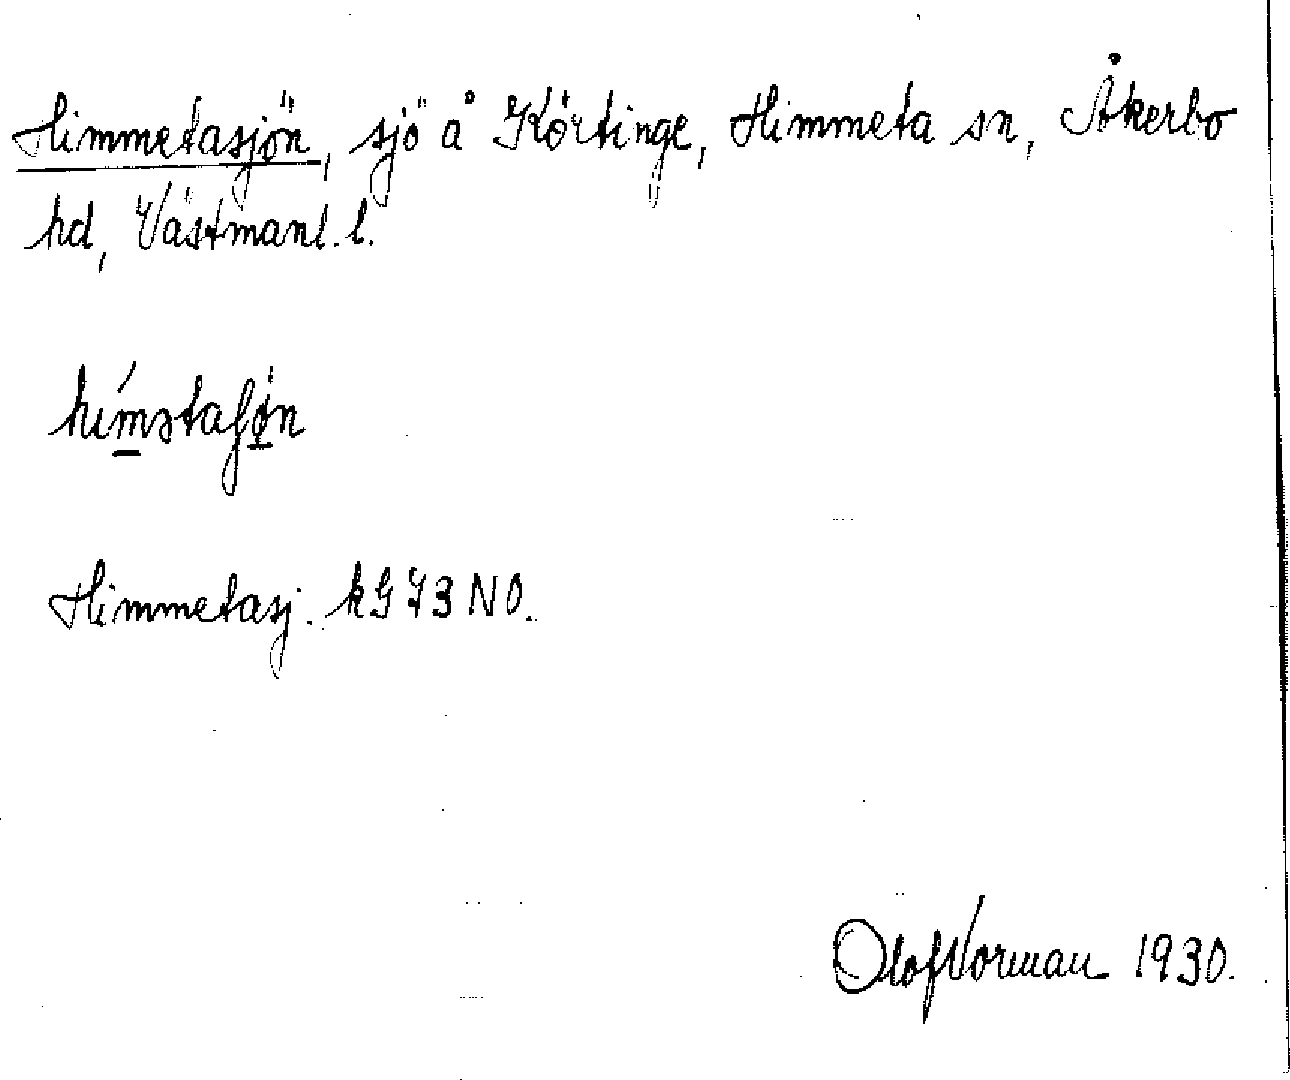 Himmetasjön, sjö å Körtinge, Himmeta sn, Åkerbo
hd, Västmanl. l.
Himmetasj. kG 73 NO.
Olof Norman 1930.